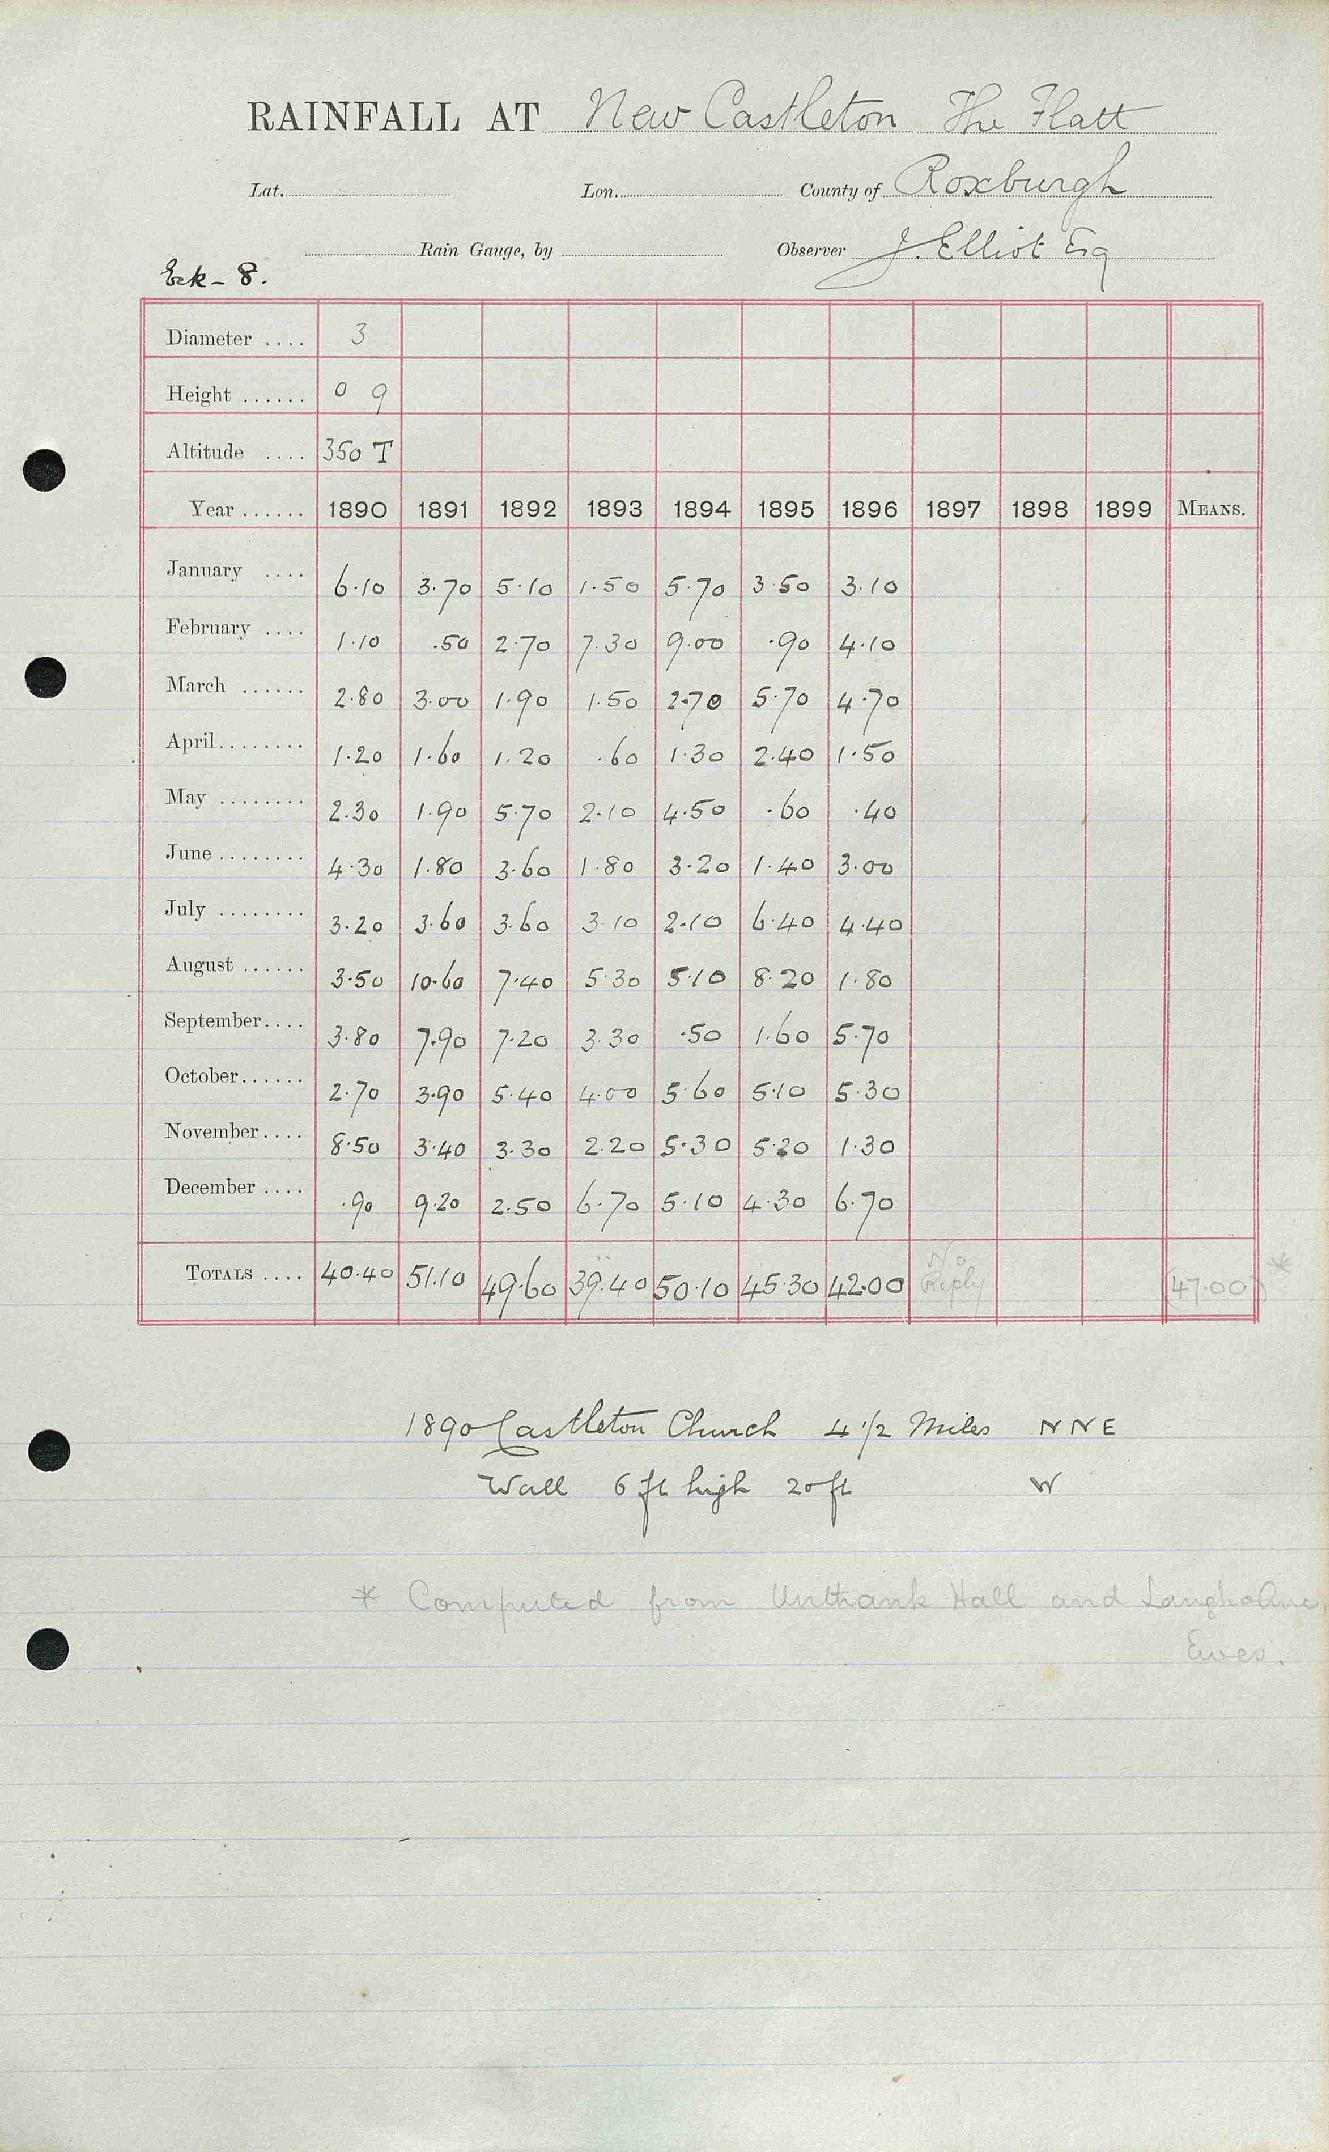 RAINFALL AT New Castleton The Flatt
Lat. Lon. County of Roxburgh
Rain Gauge, by Observer J. Elliot Esq
Esk - 8.
Diameter .... 3
Height ...... 0 9
Altitude .... 350 T
Year ...... 1890 1891 1892 1893 1894 1895 1896 1897 1898 1899 MEANS.
January .... 6.10 3.70 5.10 1.50 5.70 3.50 3.10
February .... 1.10 .50 2.70 7.30 9.00 .90 4.10
March ...... 2.80 3.00 1.90 1.50 2.70 5.70 4.70
April ........ 1.20 1.60 1.20 .60 1.30 2.40 1.50
May ........ 2.30 1.90 5.70 2.10 4.50 .60 .40
June ........ 4.30 1.80 3.60 1.80 3.20 1.40 3.00
July ........ 3.20 3.60 3.60 3.10 2.10 6.40 4.40
August ...... 3.50 10.60 7.40 5.30 5.10 8.20 1.80
September .... 3.80 7.90 7.20 3.30 .50 1.60 5.70
October ...... 2.70 3.90 5.40 4.00 5.60 5.10 5.30
November .... 8.50 3.40 3.30 2.20 5.30 5.20 1.30
December .... .90 9.20 2.50 6.70 5.10 4.30 6.70
TOTALS .... 40.40 51.10 49.60 39.40 50.10 45.30 42.00 No Reply (47.00) *
1890 Castleton Church 4 1/2 Miles N N E
Wall 6 ft high 20 ft W
* Computed from Unthank Hall and Langholm,
Ewes.